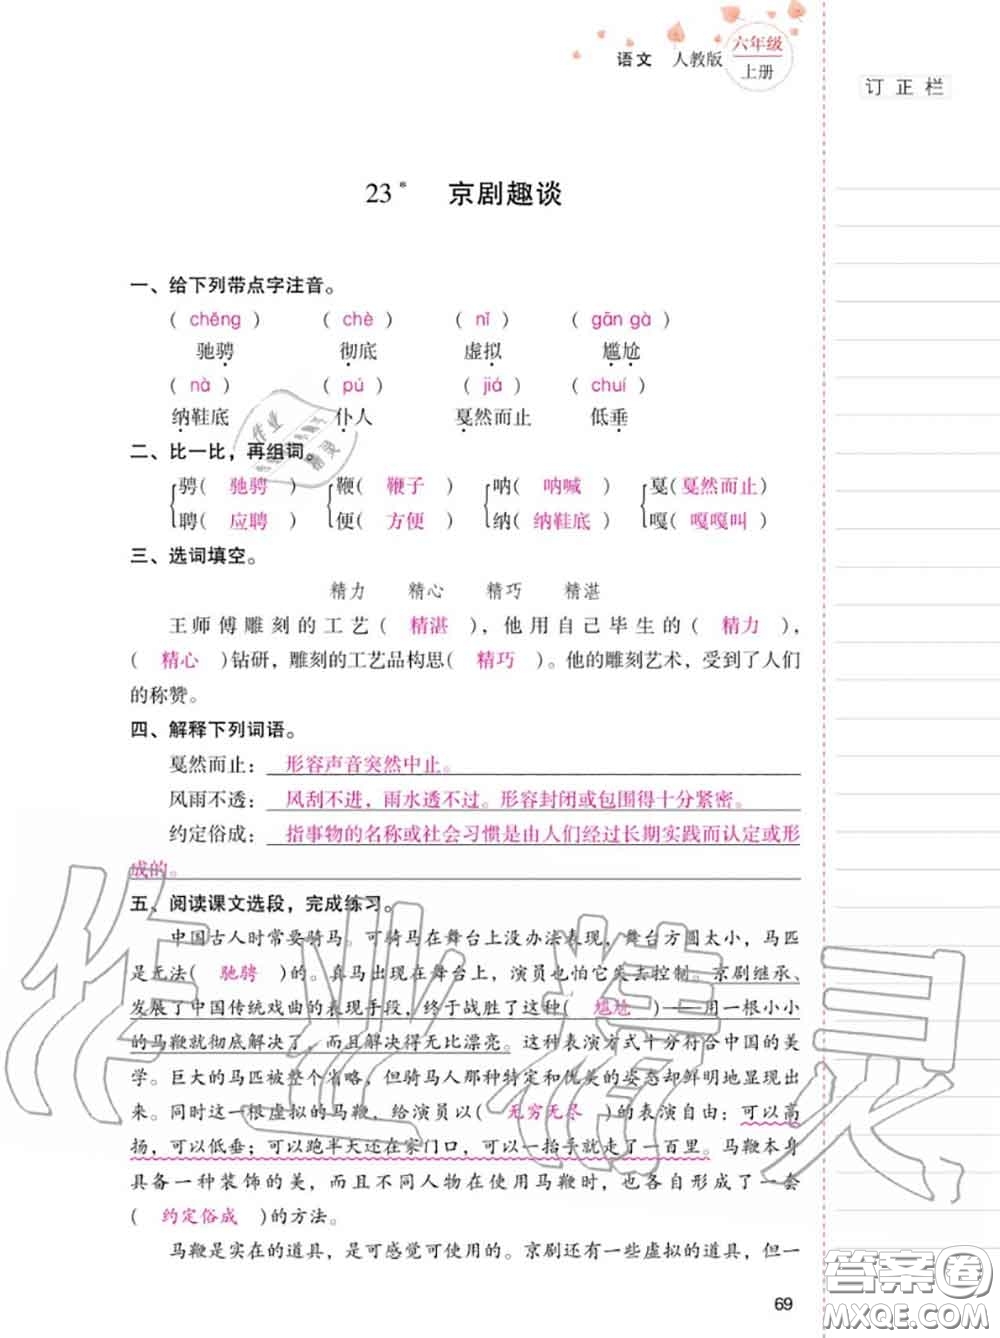 语文 人教版 六年级
上册
订正栏
23* 京剧趣谈
一、给下列带点字注音。
( chěng ) ( chè ) ( nǐ ) ( gān gà )
驰骋 彻底 虚拟 尴尬
( nà ) ( pú ) ( jiá ) ( chuí )
纳鞋底 仆人 戛然而止 低垂
二、比一比，再组词。
骋( 驰骋 ) 鞭( 鞭子 ) 呐( 呐喊 ) 戛(戛然而止)
聘( 应聘 ) 便( 方便 ) 纳( 纳鞋底 ) 嘎( 嘎嘎叫 )
三、选词填空。
精力 精心 精巧 精湛
王师傅雕刻的工艺( 精湛 )，他用自己毕生的( 精力 )，
( 精心 )钻研，雕刻的工艺品构思( 精巧 )。他的雕刻艺术，受到了人们
的称赞。
四、解释下列词语。
戛然而止： 形容声音突然中止。
风雨不透： 风刮不进，雨水透不过。形容封闭或包围得十分紧密。
约定俗成： 指事物的名称或社会习惯是由人们经过长期实践而认定或形
成的。
五、阅读课文选段，完成练习。
中国古人时常要骑马。可骑马在舞台上没办法表现，舞台方圆太小，马匹
是无法( 驰骋 )的。真马出现在舞台上，演员也怕它失去控制。京剧继承、
发展了中国传统戏曲的表现手段，终于战胜了这种( 尴尬 )——用一根小小
的马鞭就彻底解决了，而且解决得无比漂亮。这种表演方式十分符合中国的美
学。巨大的马匹被整个省略，但骑马人那种特定和优美的姿态却鲜明地显现出
来。同时这一根虚拟的马鞭，给演员以( 无穷无尽 )的表演自由：可以高
扬，可以低垂；可以跑半天还在家门口，可以一抬手就走了一百里。马鞭本身
具备一种装饰的美，而且不同人物在使用马鞭时，也各自形成了一套
( 约定俗成 )的方法。
马鞭是实在的道具，是可感觉可使用的。京剧还有一些虚拟的道具，但一
69
作业精灵
答案圈
MXQE.COM